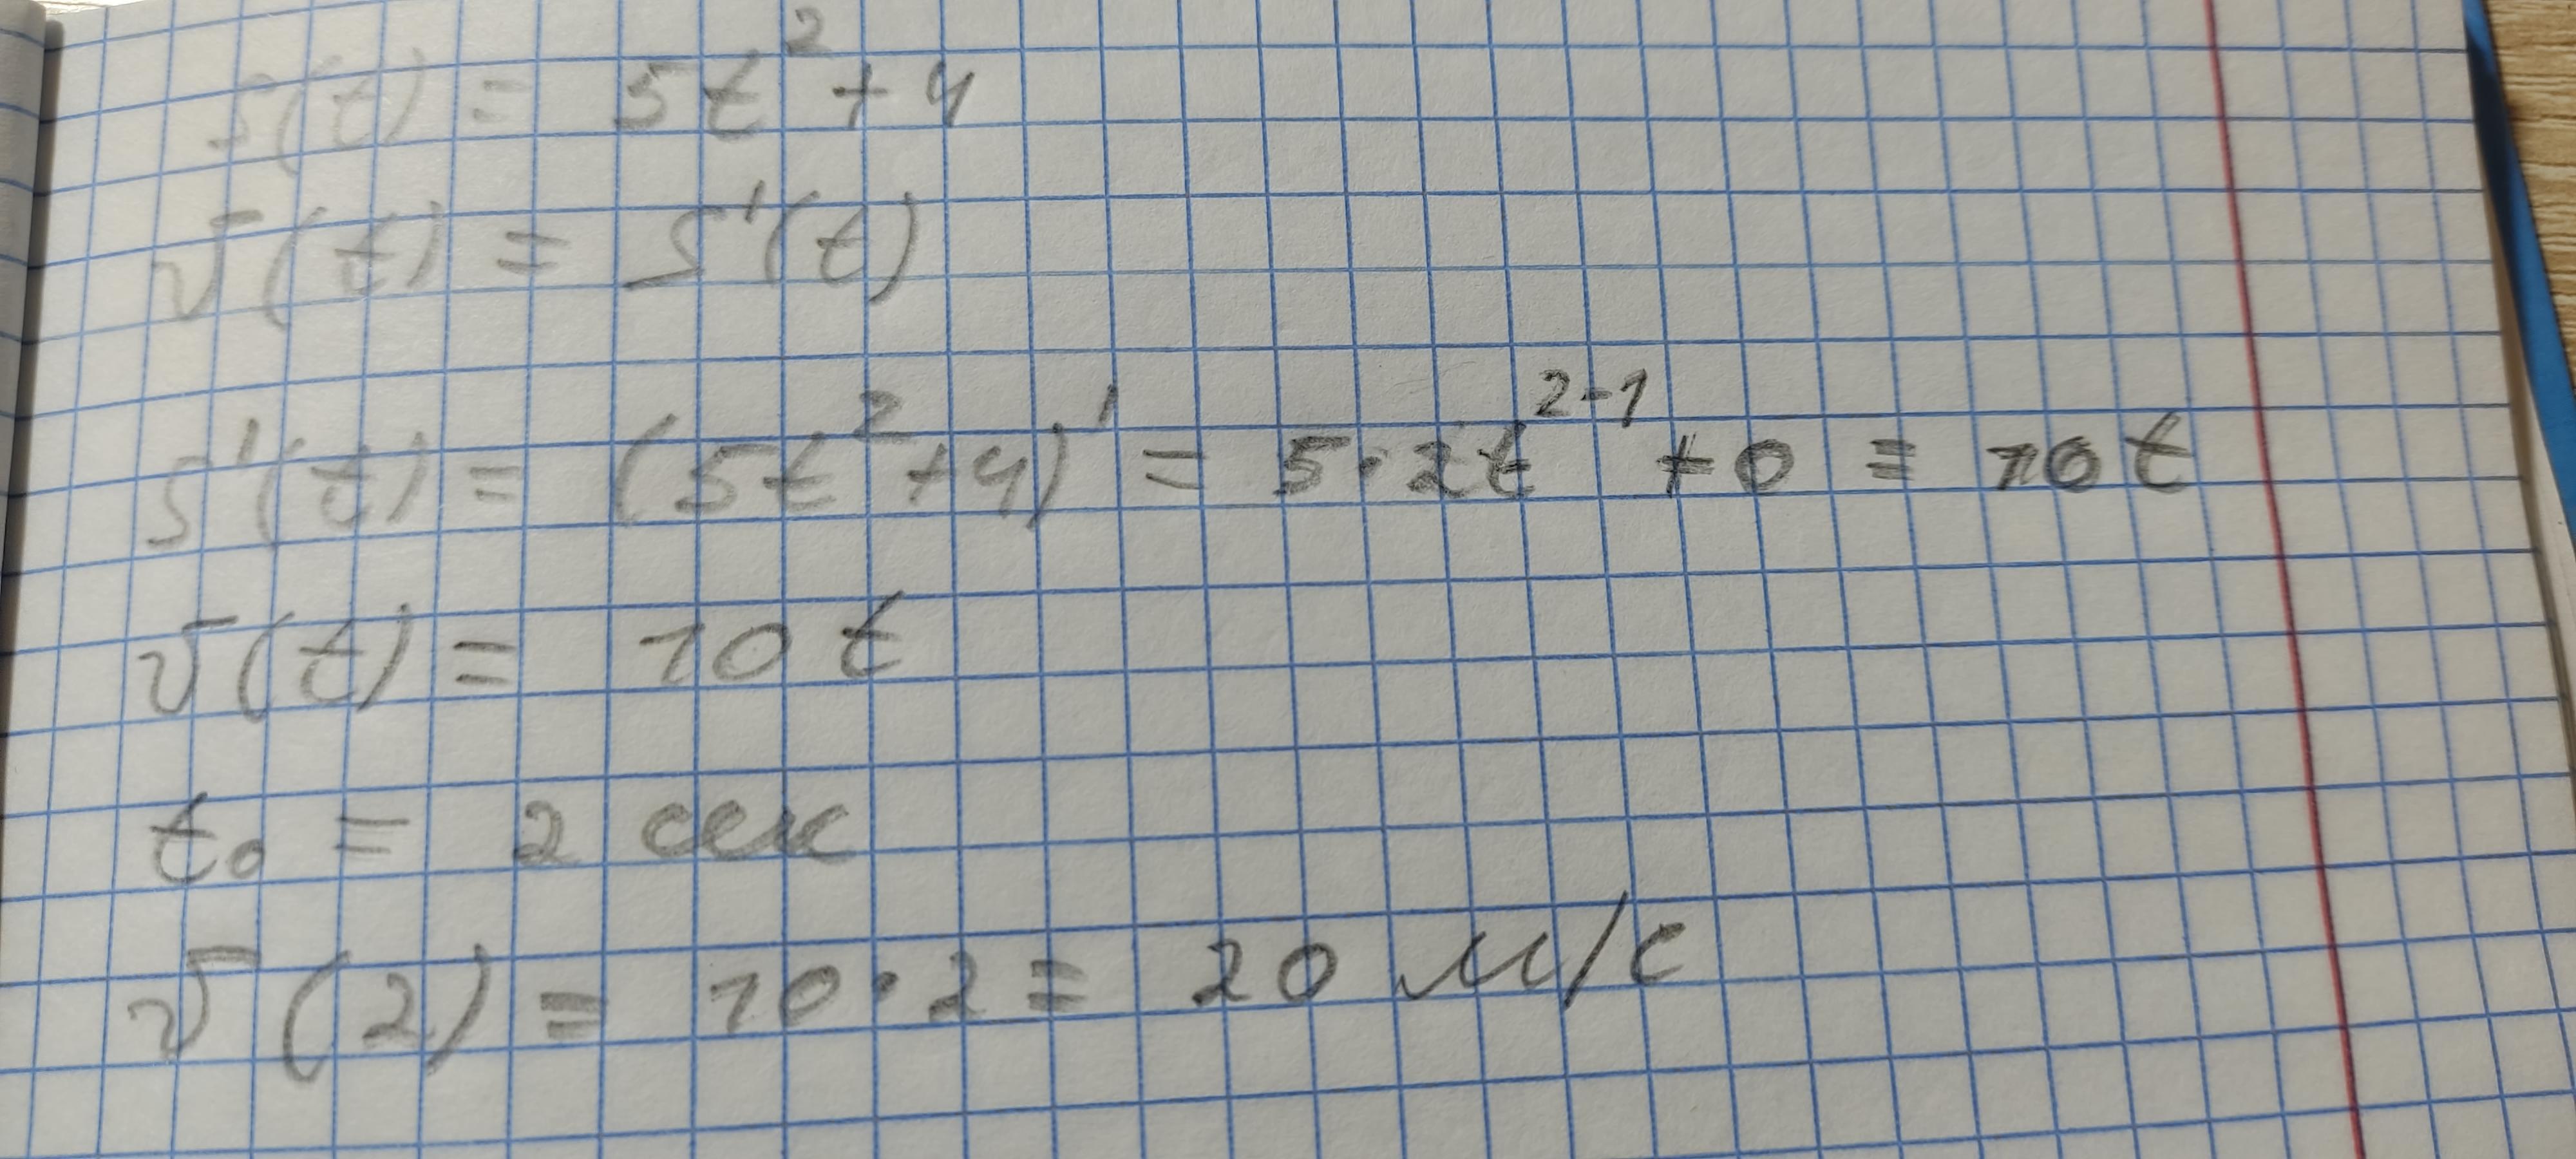 S(t) = 5t² + 4
v(t) = S'(t)
S'(t) = (5t² + 4)' = 5·2t²⁻¹ + 0 = 10t
v(t) = 10t
t₀ = 2 сек
v(2) = 10·2 = 20 м/с